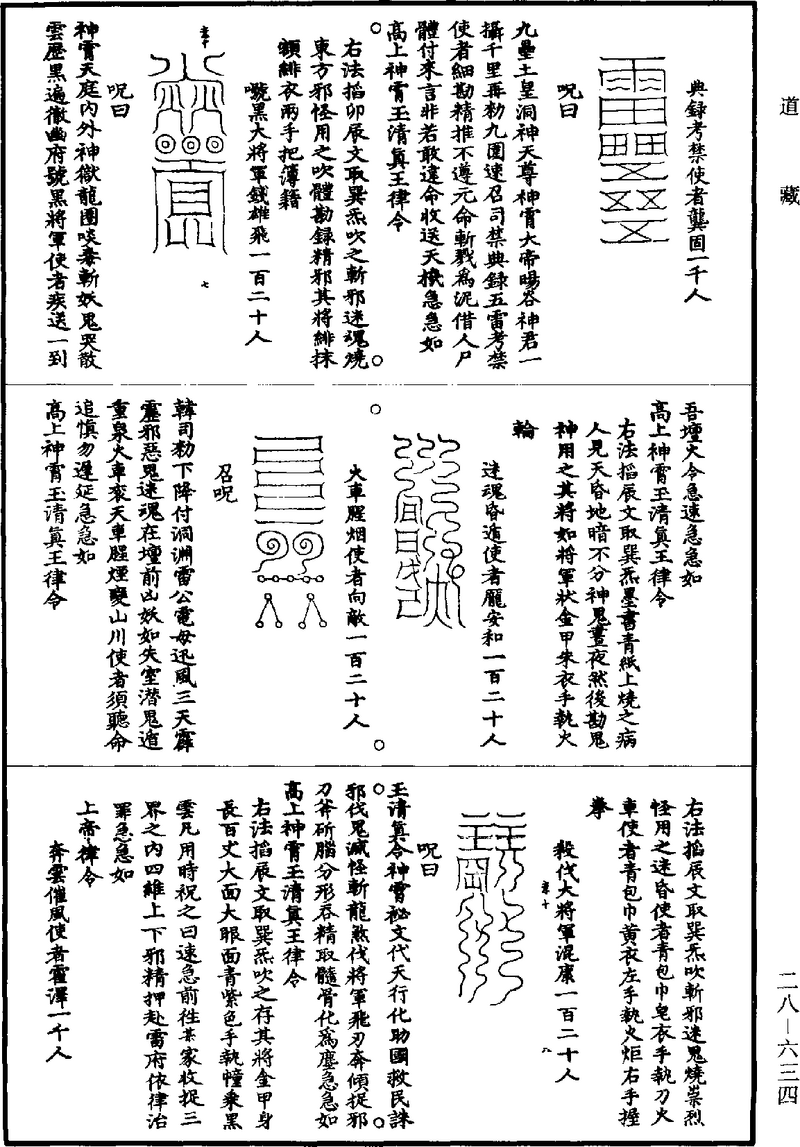 道藏
典録考禁使者龔固一千人
呪曰
九壘土皇洞神天尊神霄大帝賜谷神君一
攝千里再勑九圍速召司禁典録五雷考禁
使者細勘精推不遵元命斬戮爲泥借人尸
體付來言非若敢違命收送天機急急如
高上神霄玉清真王律令
右法掐卯辰文取巽炁吹之斬邪迷魂燒
東方邪怪用之吹體勘録精邪其將緋抹
額緋衣兩手把簿籍
號黑大將軍錢雄飛一百二十人
呪曰
神霄天庭内外神獄龍圍啖毒斬妖鬼哭散
雲歷黑遍徹幽府號黑將軍使者疾送一到
吾壇火令急速急急如
高上神霄玉清真王律令
右法掐辰文取巽炁墨書青紙上燒之病
人見天昏地暗不分神鬼晝夜然後勘鬼
神用之其將如將軍狀金甲朱衣手執火
輪
迷魂昏遁使者龐安和一百二十人
火車腥烟使者向敵一百二十人
召呪
韓司勑下降付洞淵雷公電母迅風三天霹
靂邪惡鬼迷魂在壇前凶妖如失室潛鬼遁
重泉火車衮天車腥煙變山川使者須聽命
追慎勿遲延急急如
高上神霄玉清真王律令
右法掐辰文取巽炁吹斬邪迷鬼燒祟烈
怪用之迷昏使者青包巾皂衣手執刀火
車使者青包巾黄衣左手執火炬右手握
拳
殺伐大將軍混康一百二十人
呪曰
玉清真令神霄祕文代天行化助國救民誅
邪伐鬼滅怪斬龍煞伐將軍飛刃奔傾捉邪
刀斧斫腦分形吞精取髓骨化爲塵急急如
高上神霄玉清真王律令
右法掐辰文取巽炁吹之存其將金甲身
長百丈大面大眼面青紫色手執幢乘黑
雲凡用時祝之曰速急前徃某家收捉三
界之内四維上下邪精押赴雷府依律治
罪急急如
上帝律令
奔雲催風使者霍澤一千人
二八—六三四